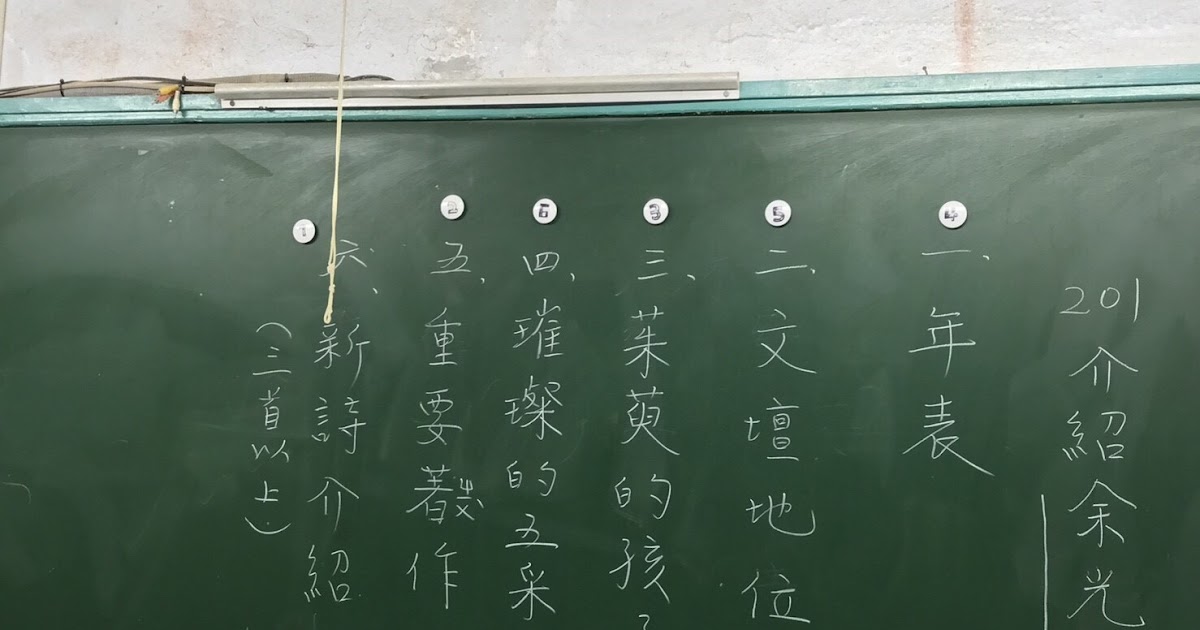 201介紹余光
④
一、年表
⑤
二、文壇地位
③
三、茱萸的孩
⑥
四、璀璨的五采
②
五、重要著作
①
六、新詩介紹
(三首以上)